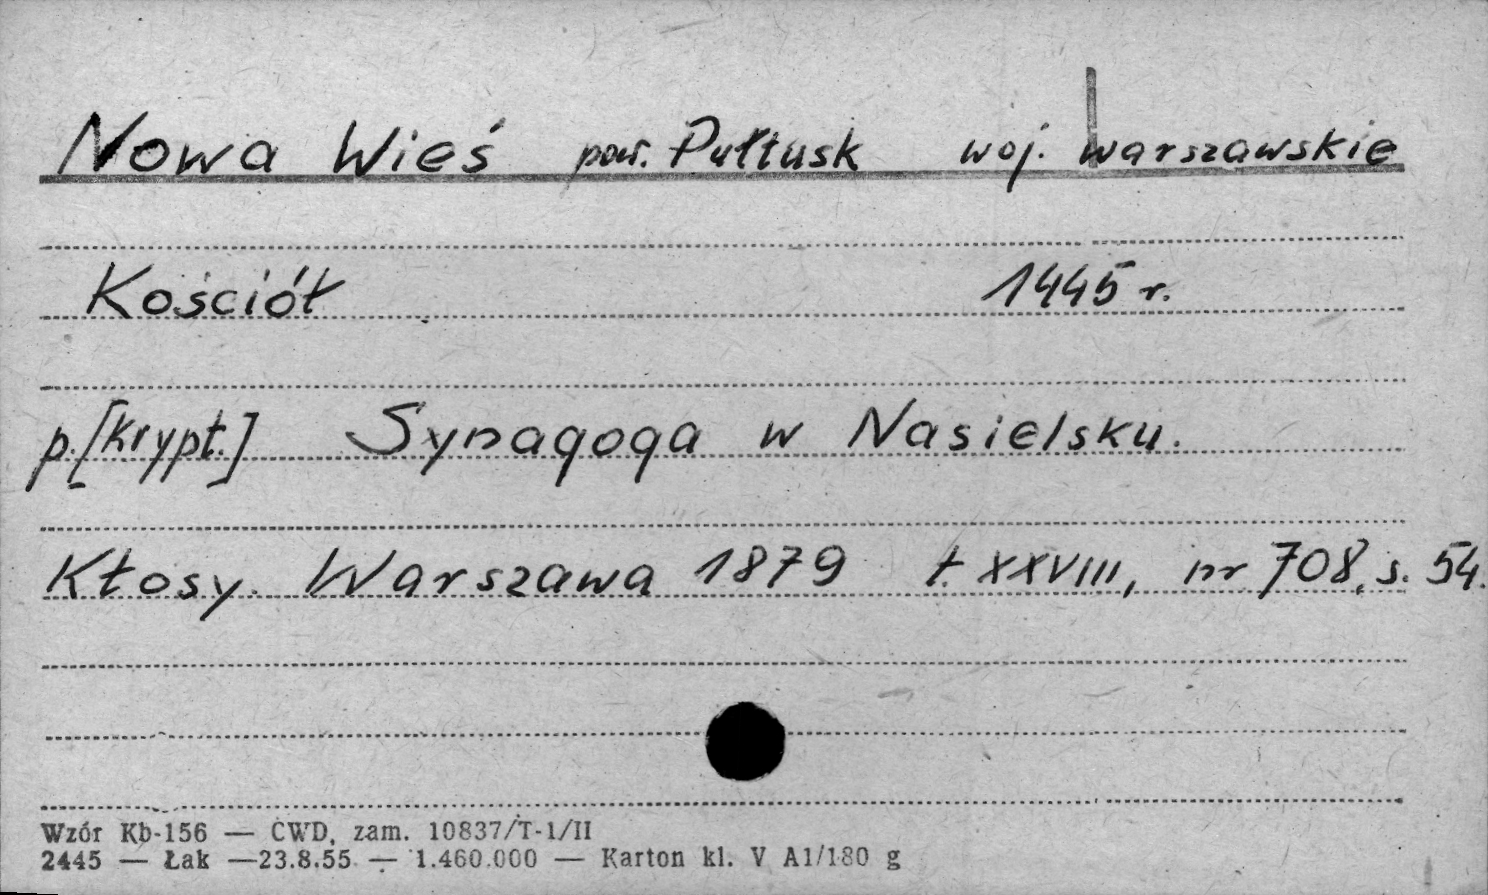 Nowa Wieś pow. Pułtusk woj. Warszawskie
Kościół 1445 r.
p. [krypt.] Synagoga w Nasielsku.
Kłosy. Warszawa 1879 t. XXVIII, nr 708, s. 54.
Wzór Kb-156 — CWD, zam. 10837/T-1/II
2445 — Łak —23.8.55 — 1.460.000 — Karton kl. V A1/180 g